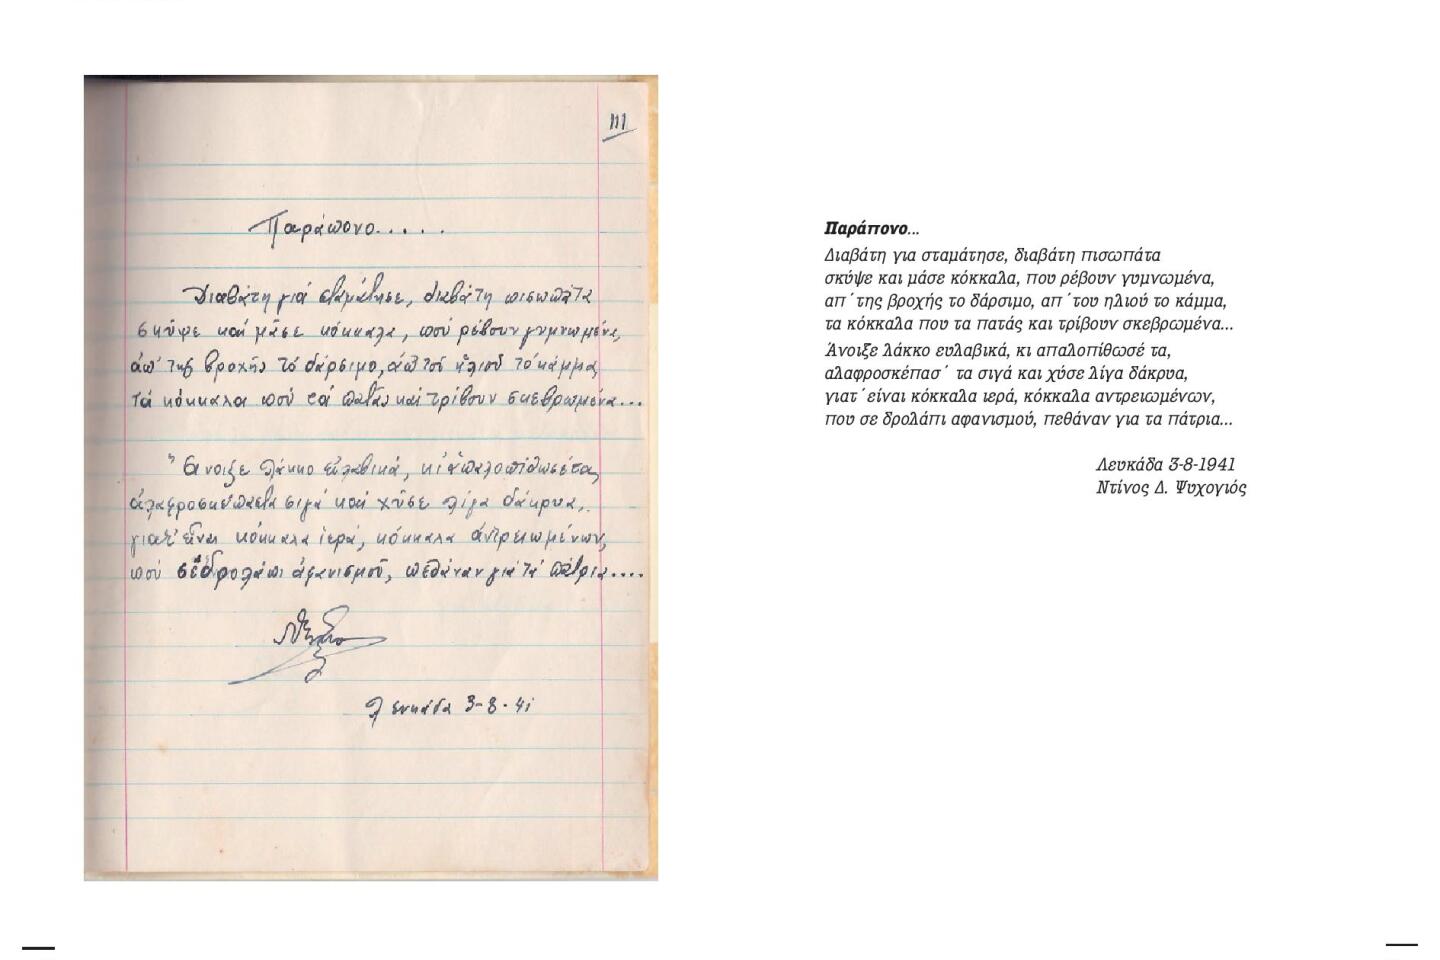 111
Παράπονο.....
Διαβάτη γιά σταμάτησε, διαβάτη πισωπάτα
σκῦψε καί μᾶσε κόκκαλα, πού ρέβουν γυμνωμένα,
ἀπ' τῆς βροχῆς τό δάρσιμο, ἀπ τοῦ ἥλιοῦ τό κάμμα,
τά κόκκαλα πού τά πατᾶς καί τρίβουν σκεβρωμένα...
Ἄνοιξε λάκκο εὐλαβικά, κι ἀπαλοπίθωσέ τα,
ἀλαφροσκέπασ τα σιγά καί χῦσε λίγα δάκρυα,
γιατ' εἶναι κόκκαλα ἱερά, κόκκαλα ἀντρειωμένων,
πού σέ δρολάπι ἀφανισμοῦ, πεθάναν γιά τά πάτρια....
Λευκάδα 3-8-41
Παράπονο...
Διαβάτη για σταμάτησε, διαβάτη πισωπάτα
σκύψε και μάσε κόκκαλα, που ρέβουν γυμνωμένα,
απ΄της βροχής το δάρσιμο, απ΄του ηλιού το κάμμα,
τα κόκκαλα που τα πατάς και τρίβουν σκεβρωμένα...
Άνοιξε λάκκο ευλαβικά, κι απαλοπίθωσέ τα,
αλαφροσκέπασ΄ τα σιγά και χύσε λίγα δάκρυα,
γιατ΄είναι κόκκαλα ιερά, κόκκαλα αντρειωμένων,
που σε δρολάπι αφανισμού, πεθάναν για τα πάτρια...
Λευκάδα 3-8-1941
Ντίνος Δ. Ψυχογιός